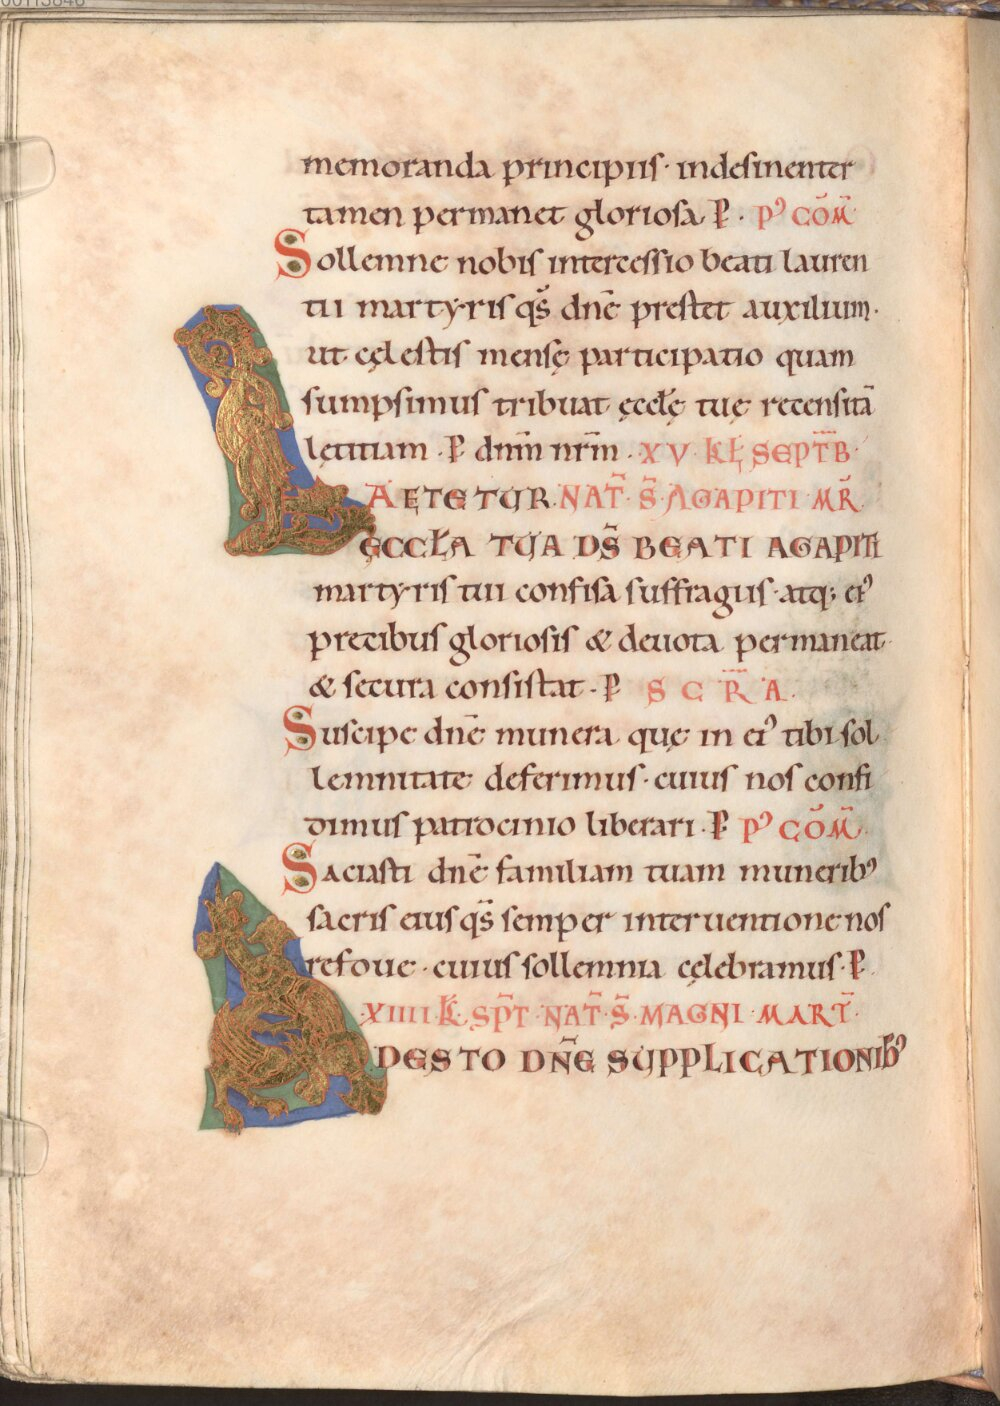 memoranda principiis· indesinenter
tamen permanet gloriosa. P̄ · Pꝰ CŌM̄
Sollemne nobis intercessio beati lauren
tii martyris qs̄ dnē prestet auxilium·
ut cęlestis mensę participatio quam
sumpsimus tribuat ęccłę tuę recensitā
lętitiam · P̄ dnm̄ nrm̄ · XV · KŁ SEPT̄B·
LAETETUR NAT̄· S̄· AGAPITI MR̄
ĘCCŁA TUA DS̄ BEATI AGAPITI
martyris tui confisa suffragiis· atq; eiꝰ
precibus gloriosis & deuota permaneat·
& secura consistat· P̄ S C R̄ A·
Suscipe dnē munera quę in eiꝰ tibi sol
lemnitate deferimus· cuius nos confi
dimus patrocinio liberari· P̄ Pꝰ CŌM̄·
Saciasti dnē familiam tuam muneribꝰ
sacris eius qs̄ semper interuentione nos
refoue · cuius sollemnia cęlebramus· P̄
·XIIII· KŁ· SP̄T· NAT̄· S̄· MAGNI · MART̄·
ADESTO DN̄E SUPPLICATIONIBꝰ